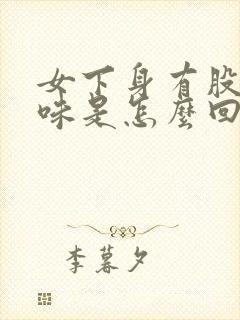 女下身有股
味是怎麼回
李暮夕